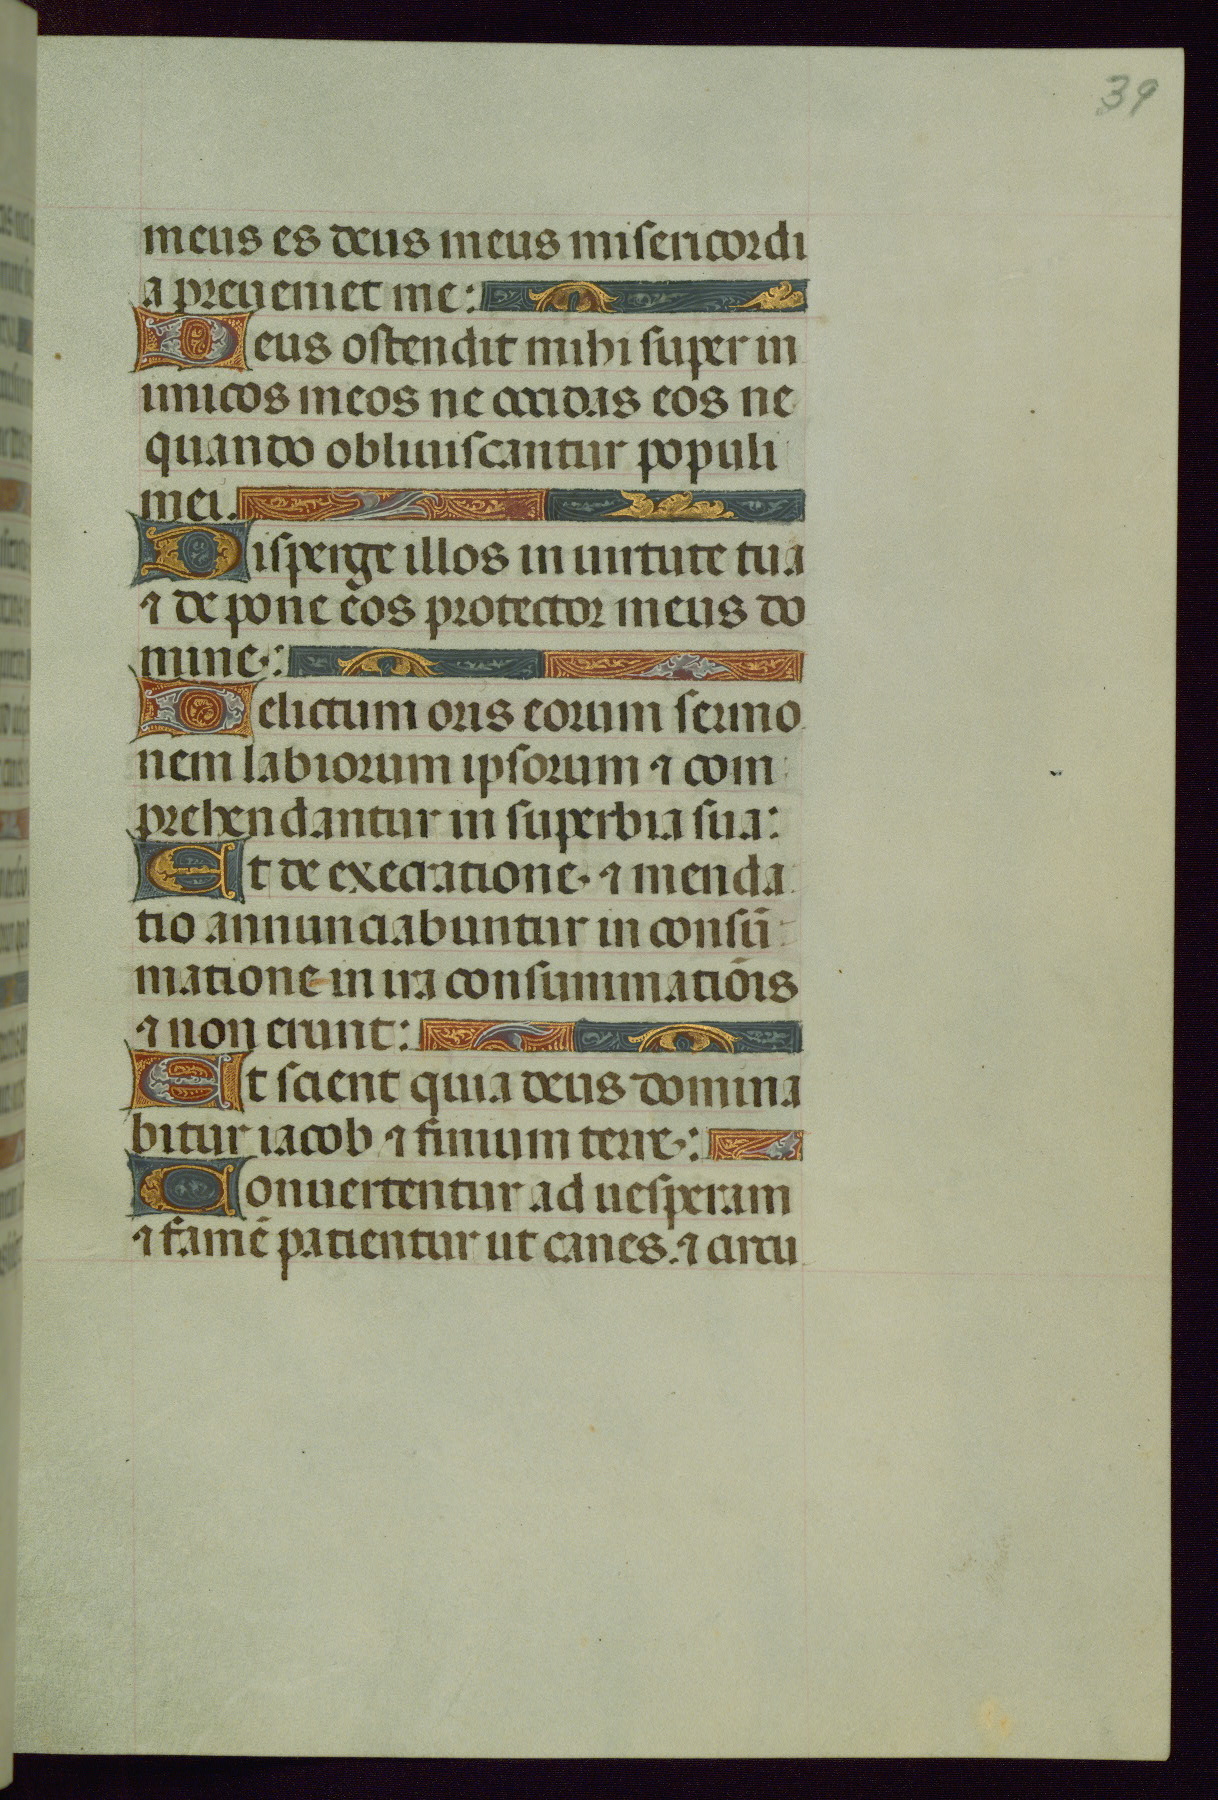 39
meus es deus meus misericordi
a preveniet me:
Deus ostendit mihi super in
imicos meos ne occidas eos ne
quando obliviiscantur populi
mei.
Disperge illos in virtute tua
⁊ de pone eos protector meus do
mine:
Delictum oris eorum sermo
nem labiorum ipsorum ⁊ com
prehendantur in superbia sua:
Et de execratione. ⁊ menda
tio annunciabuntur in consū
matione in ira consummatiōis
⁊ non erunt:
Et scient quia deus domina
bitur iacob ⁊ finium terre:
Convertentur ad vesperam
⁊ famē patientur ut canes. ⁊ circu